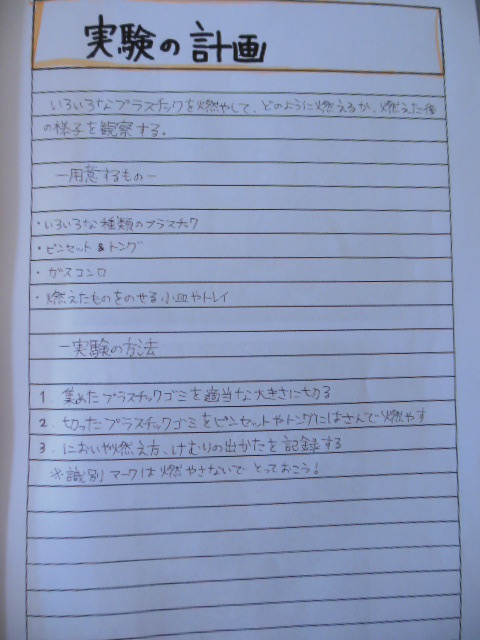 実験の計画
いろいろなプラスチックを燃やして、どのように燃えるか、燃えた後
の様子を観察する。
ー用意するものー
・いろいろな種類のプラスチック
・ピンセット&トング
・ガスコンロ
・燃えたものをのせる小皿やトレイ
ー実験の方法
1. 集めたプラスチックゴミを適当な大きさに切る
2. 切ったプラスチックゴミをピンセットやトングにはさんで燃やす
3. においや燃え方、けむりの出かたを記録する
※識別マークは燃やさないでとっておこう!